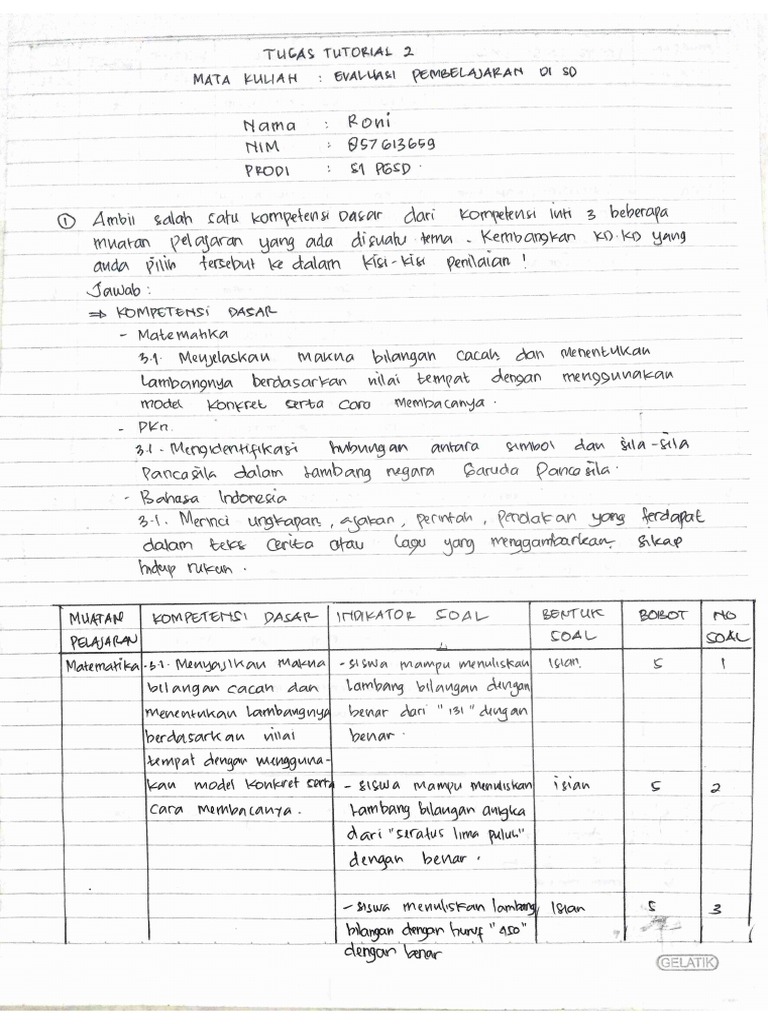 TUGAS TUTORIAL 2
MATA KULIAH : EVALUASI PEMBELAJARAN DI SD
Nama : Roni
NIM : 857613659
PRODI : S1 PGSD.
① Ambil salah satu kompetensi Dasar dari kompetensi inti 3 beberapa
muatan pelajaran yang ada disuatu tema. Kembangkan KD.KD yang
anda pilih tersebut ke dalam kisi-kisi penilaian !
Jawab :
⇒ KOMPETENSI DASAR
- Matematika
3.1. Menjelaskan makna bilangan cacah dan menentukan
Lambangnya berdasarkan nilai tempat dengan menggunakan
model konkret serta cara membacanya.
- PKn.
3.1. Mengidentifikasi hubungan antara simbol dan sila-sila
Pancasila dalam lambang negara Garuda Pancasila.
- Bahasa Indonesia
3.1. Merinci ungkapan, ajakan, perintah, penolakan yang terdapat
dalam teks cerita atau lagu yang menggambarkan sikap
hidup rukun.
MUATAN PELAJARAN KOMPETENSI DASAR INDIKATOR SOAL BENTUK SOAL BOBOT NO SOAL
Matematika
3.1. Menyajikan makna
bilangan cacah dan
menentukan Lambangnya
berdasarkan nilai
tempat dengan mengguna-
kan model konkret serta
cara membacanya.
- siswa mampu menuliskan
Lambang bilangan dengan
benar dari "131" dengan
benar.
Isian. 5 1
- siswa mampu menuliskan
Lambang bilangan angka
dari "seratus lima puluh"
dengan benar.
isian 5 2
- siswa menuliskan lambang
bilangan dengan huruf "450"
dengan benar
Isian 5 3
GELATIK